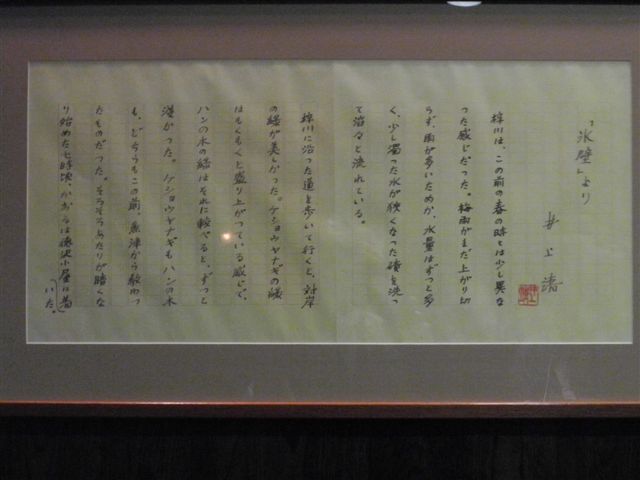 「氷壁」より
井上靖
梓川は、この前の春の時とは少し異な
った感じだった。梅雨がまだ上がり切
らず、雨が多いためか、水量はずっと多
く、少し濁った水が狭くなった磧を洗っ
て滔々と流れている。
梓川に沿った道を歩いて行くと、対岸
の緑が美しかった。ケショウヤナギの緑
はもくもくと盛り上がっている感じで、
ハンの木の緑はそれに較べると、ずっと
淡かった。ケショウヤナギもハンの木
も、どちらもこの前、魚津から教わっ
たものだった。そろそろあたりが暗くな
り始めた七時頃、かおるは徳沢小屋に着
いた。